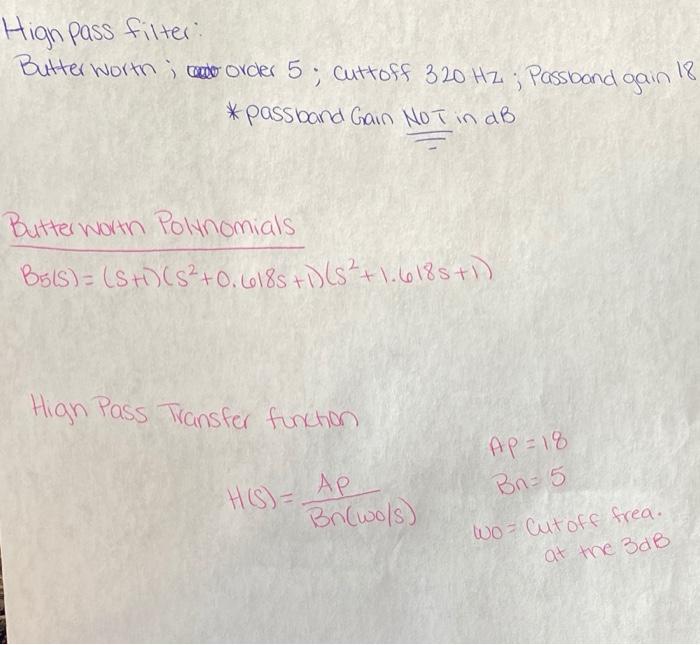 High pass filter:
Butterworth; order 5; cuttoff 320 Hz; Passband gain 18
* passband Gain NOT in dB
Butterworth Polynomials
B5(S) = (S+1)(S²+0.618S+1)(S²+1.618S+1)
High Pass Transfer function
H(S) = Ap / Bn(wo/s)
Ap = 18
Bn = 5
wo = Cutoff freq.
at the 3dB